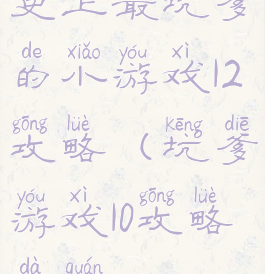 史上最坑爹
de xiǎo yóu xì
的小游戏12
gōng lüè kēng diē
攻略(坑爹
yóu xì gōng lüè
游戏10攻略
dà quán